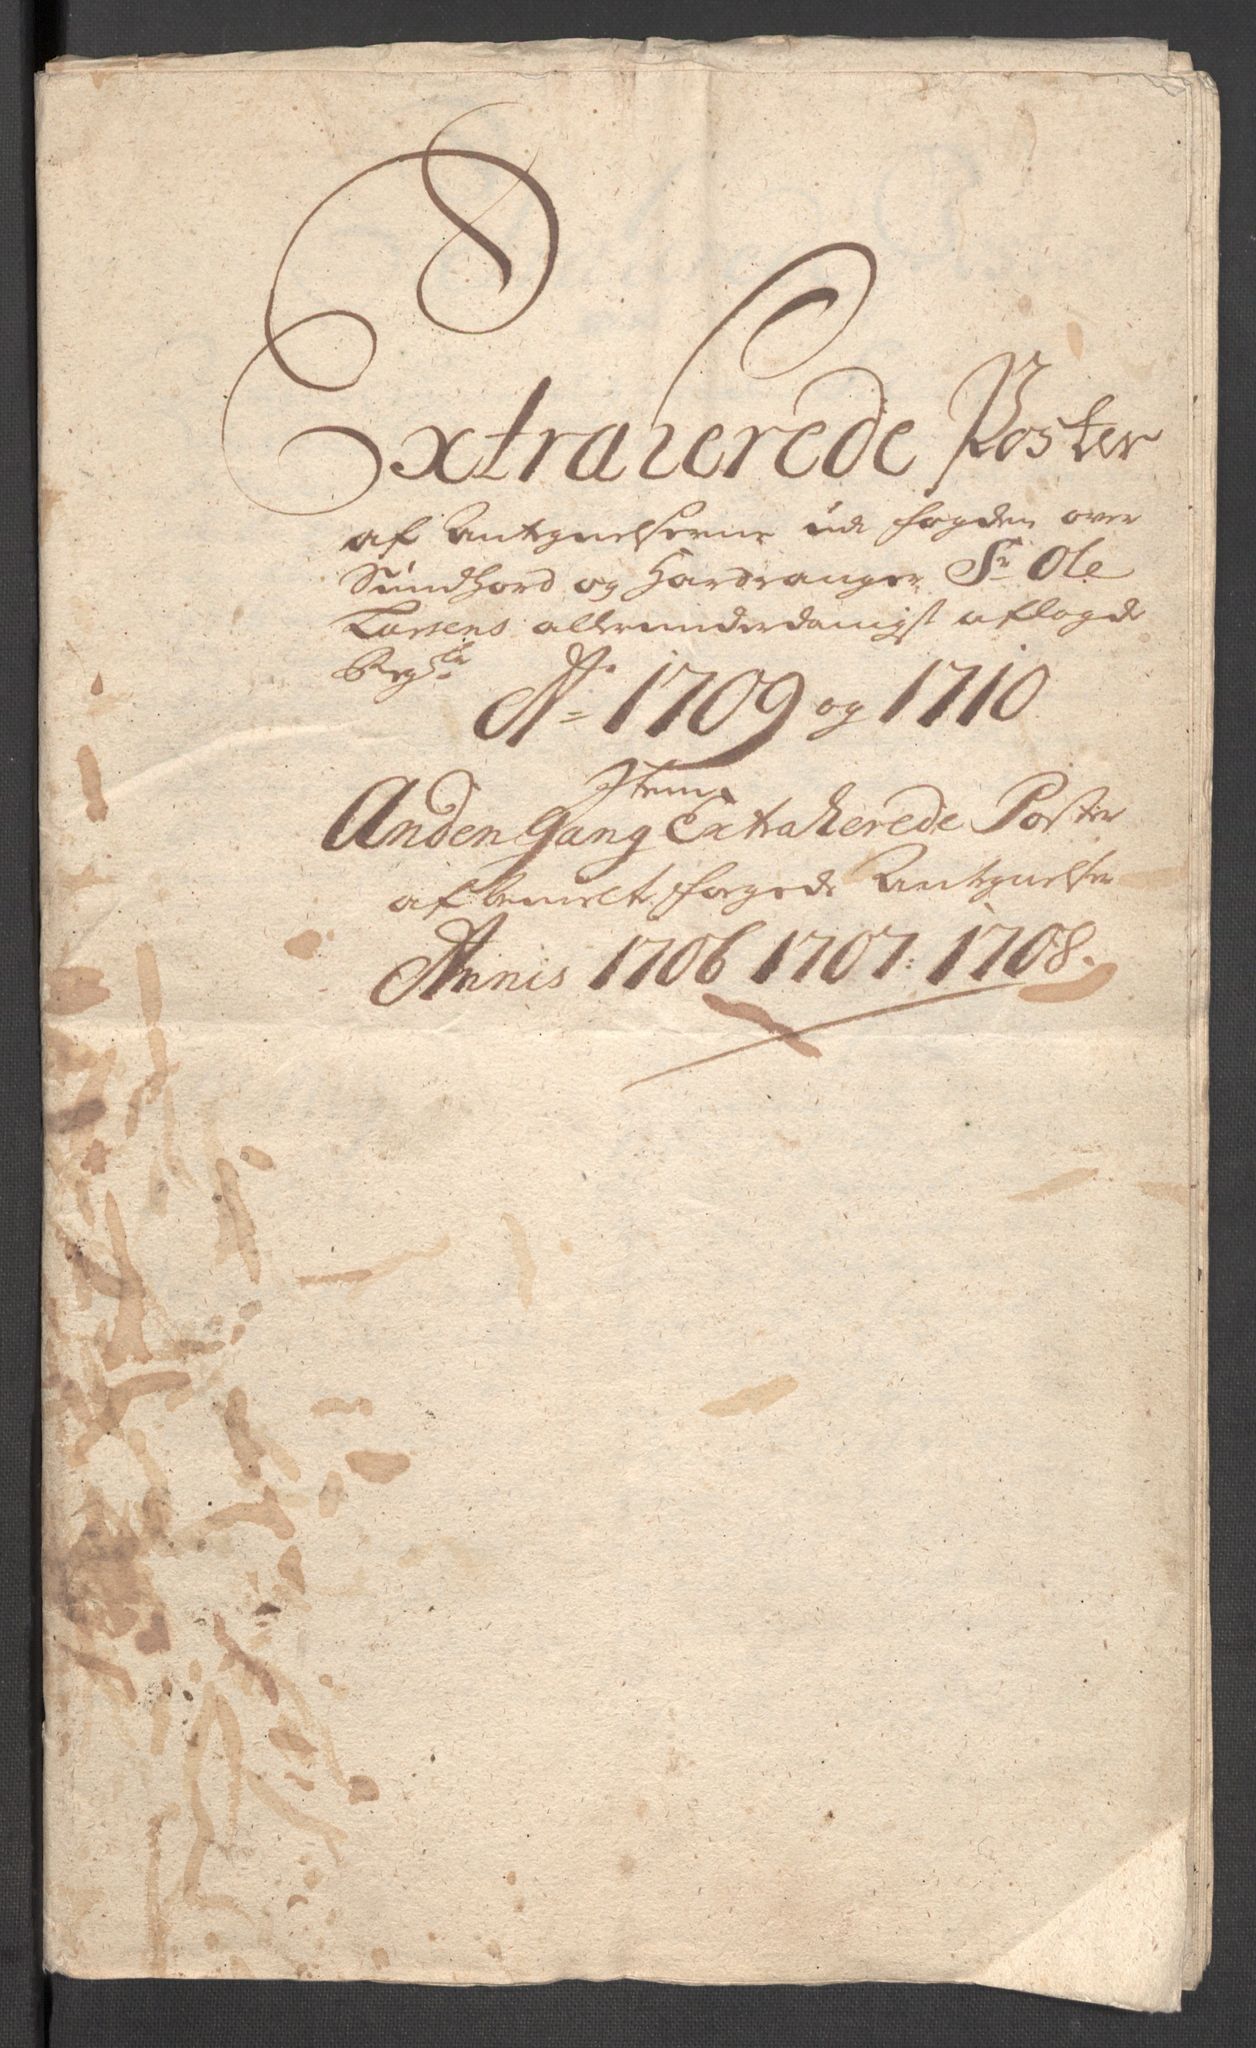 Extraherede Poster
af Antegnelserne ude fogden over
Sundhord og Hardranger Sr Ole
Larsens allerunderdanigst aflagde
Regsr
Ao 1709 og 1710
Item
Anden gang Extraherede Poster
af bemelte fogeds Antegnelser
Annis 1706 1707: 1708.